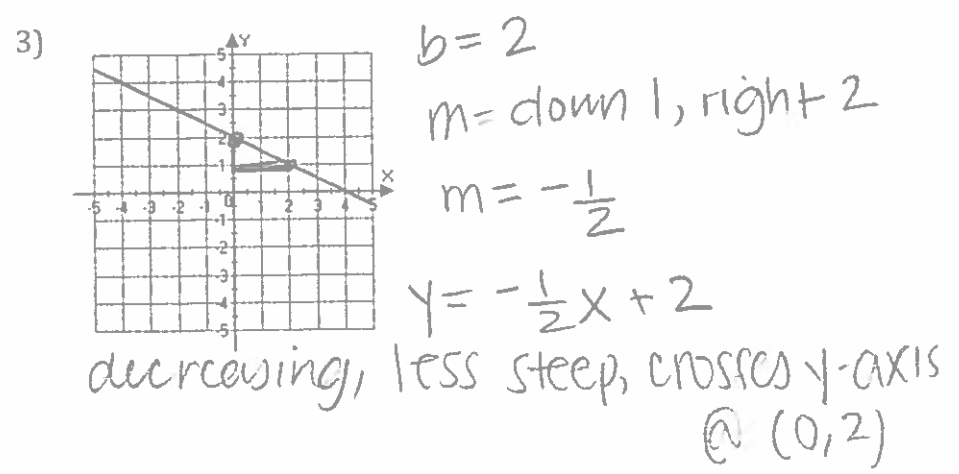 3)
Y
5
4
3
2
1
X
-5 -4 -3 -2 -1 0 1 2 3 4 5
-1
-2
-3
-4
-5
b = 2
m = down 1, right 2
m = -1/2
y = -1/2x + 2
decreasing, less steep, crosses y-axis
@ (0,2)